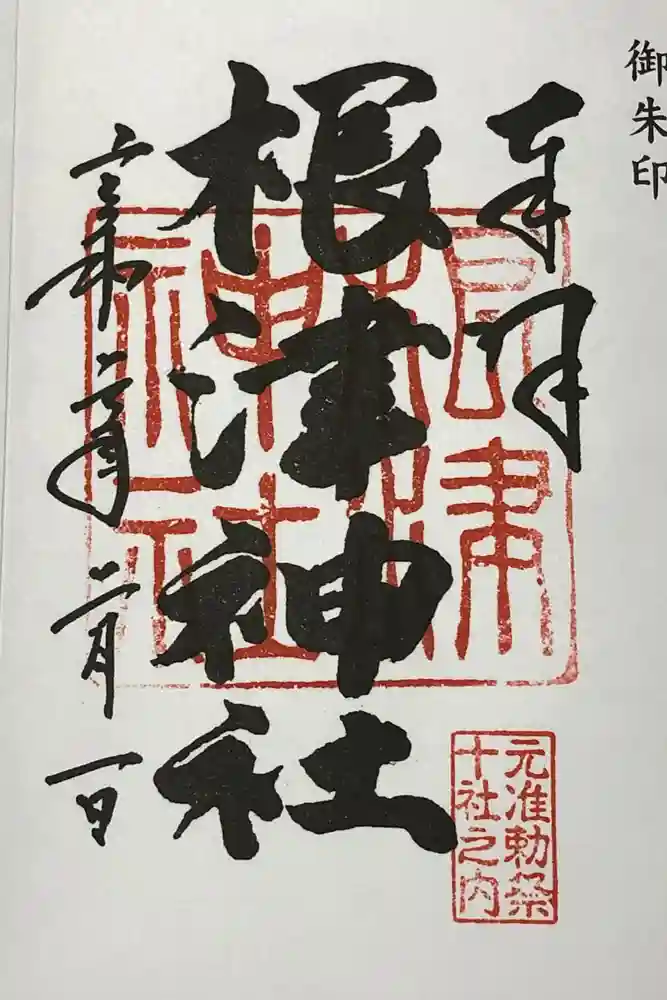 御朱印
奉拝
根津神社
令和二年
二月一日
根津神社
元准勅祭
十社之内